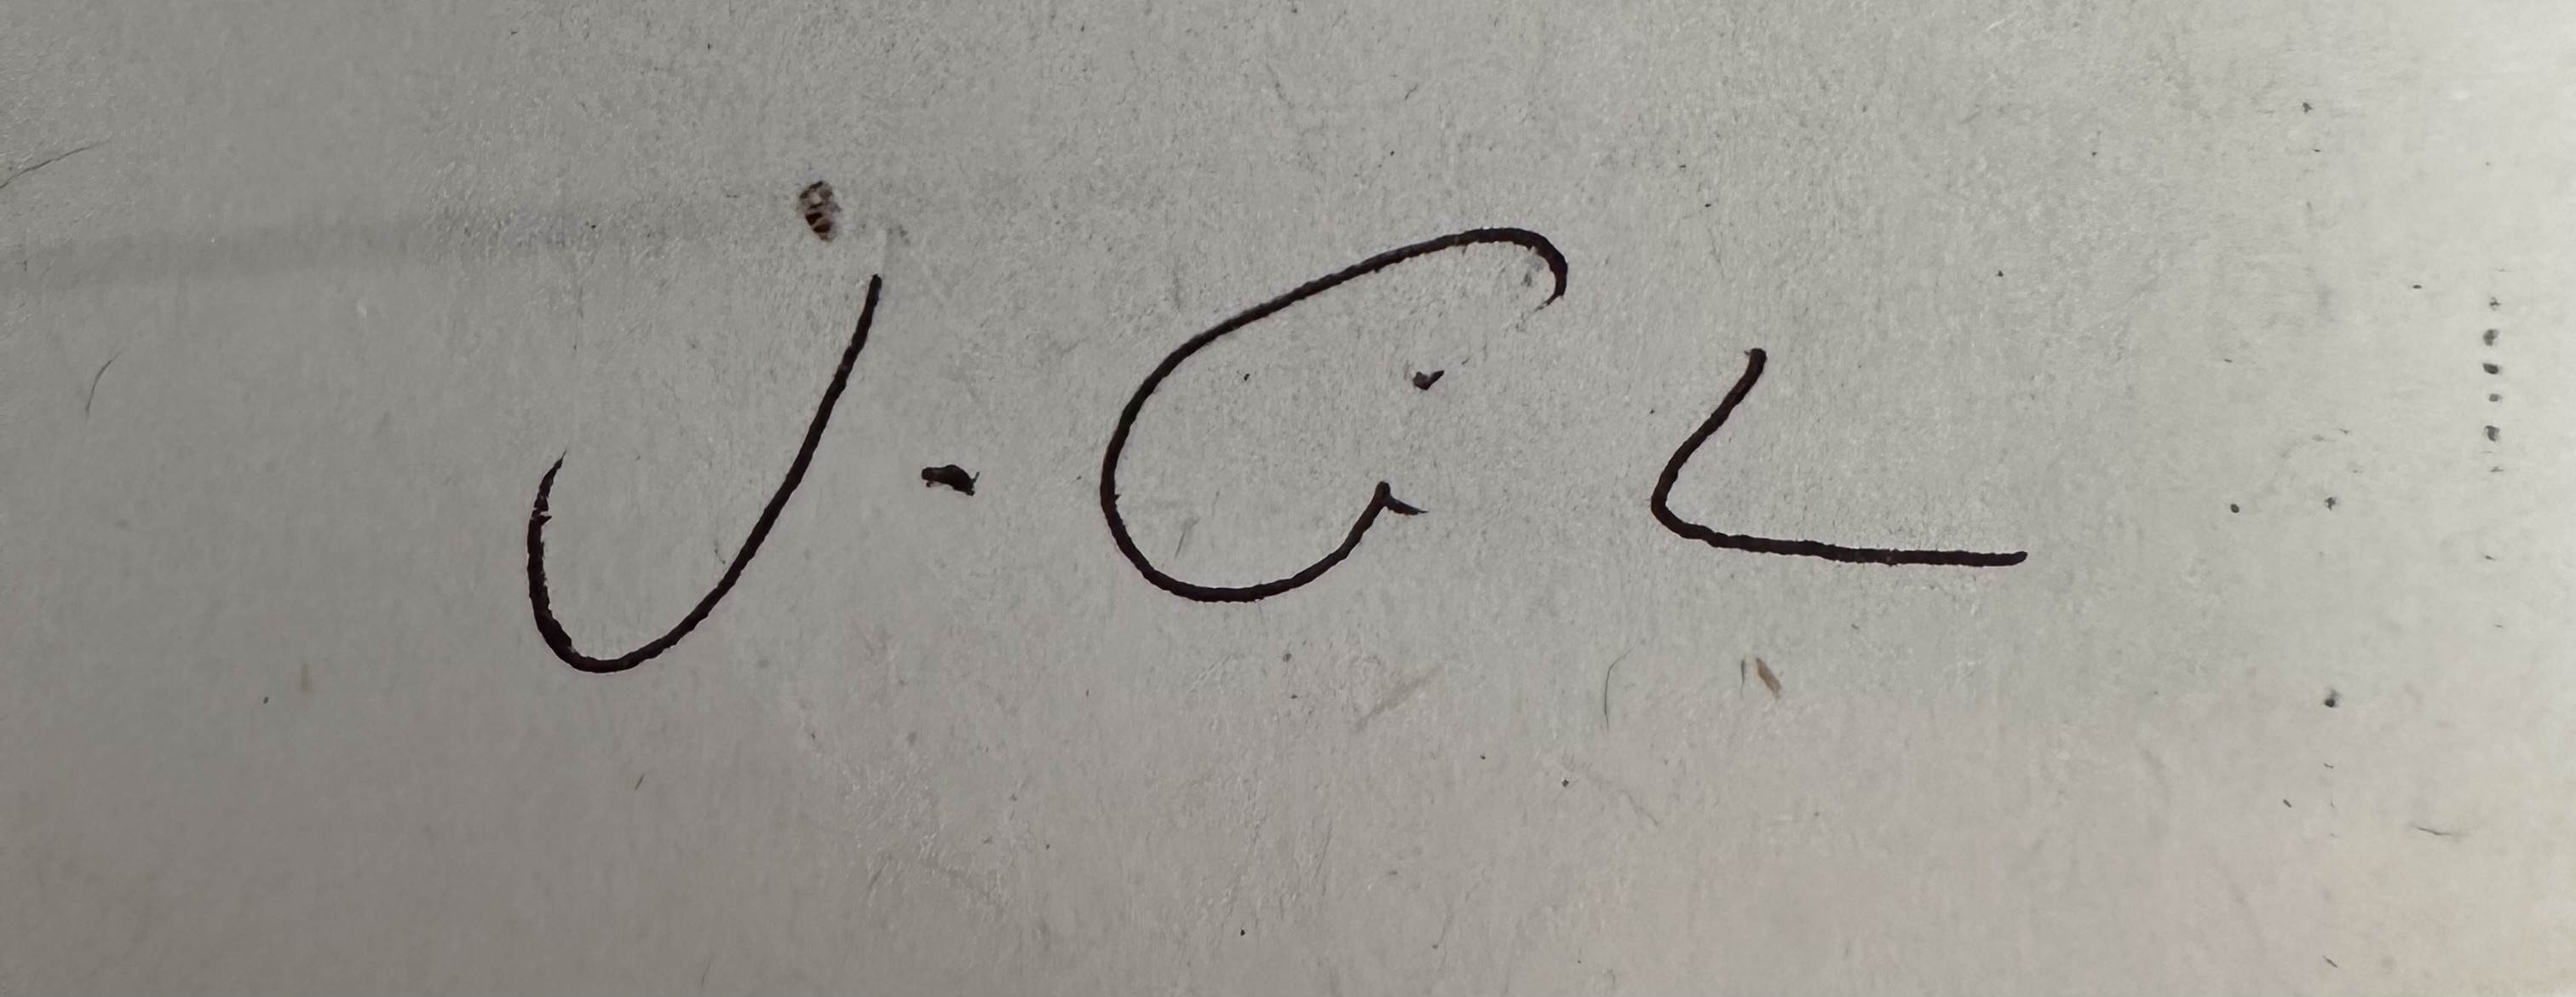 J. G. L